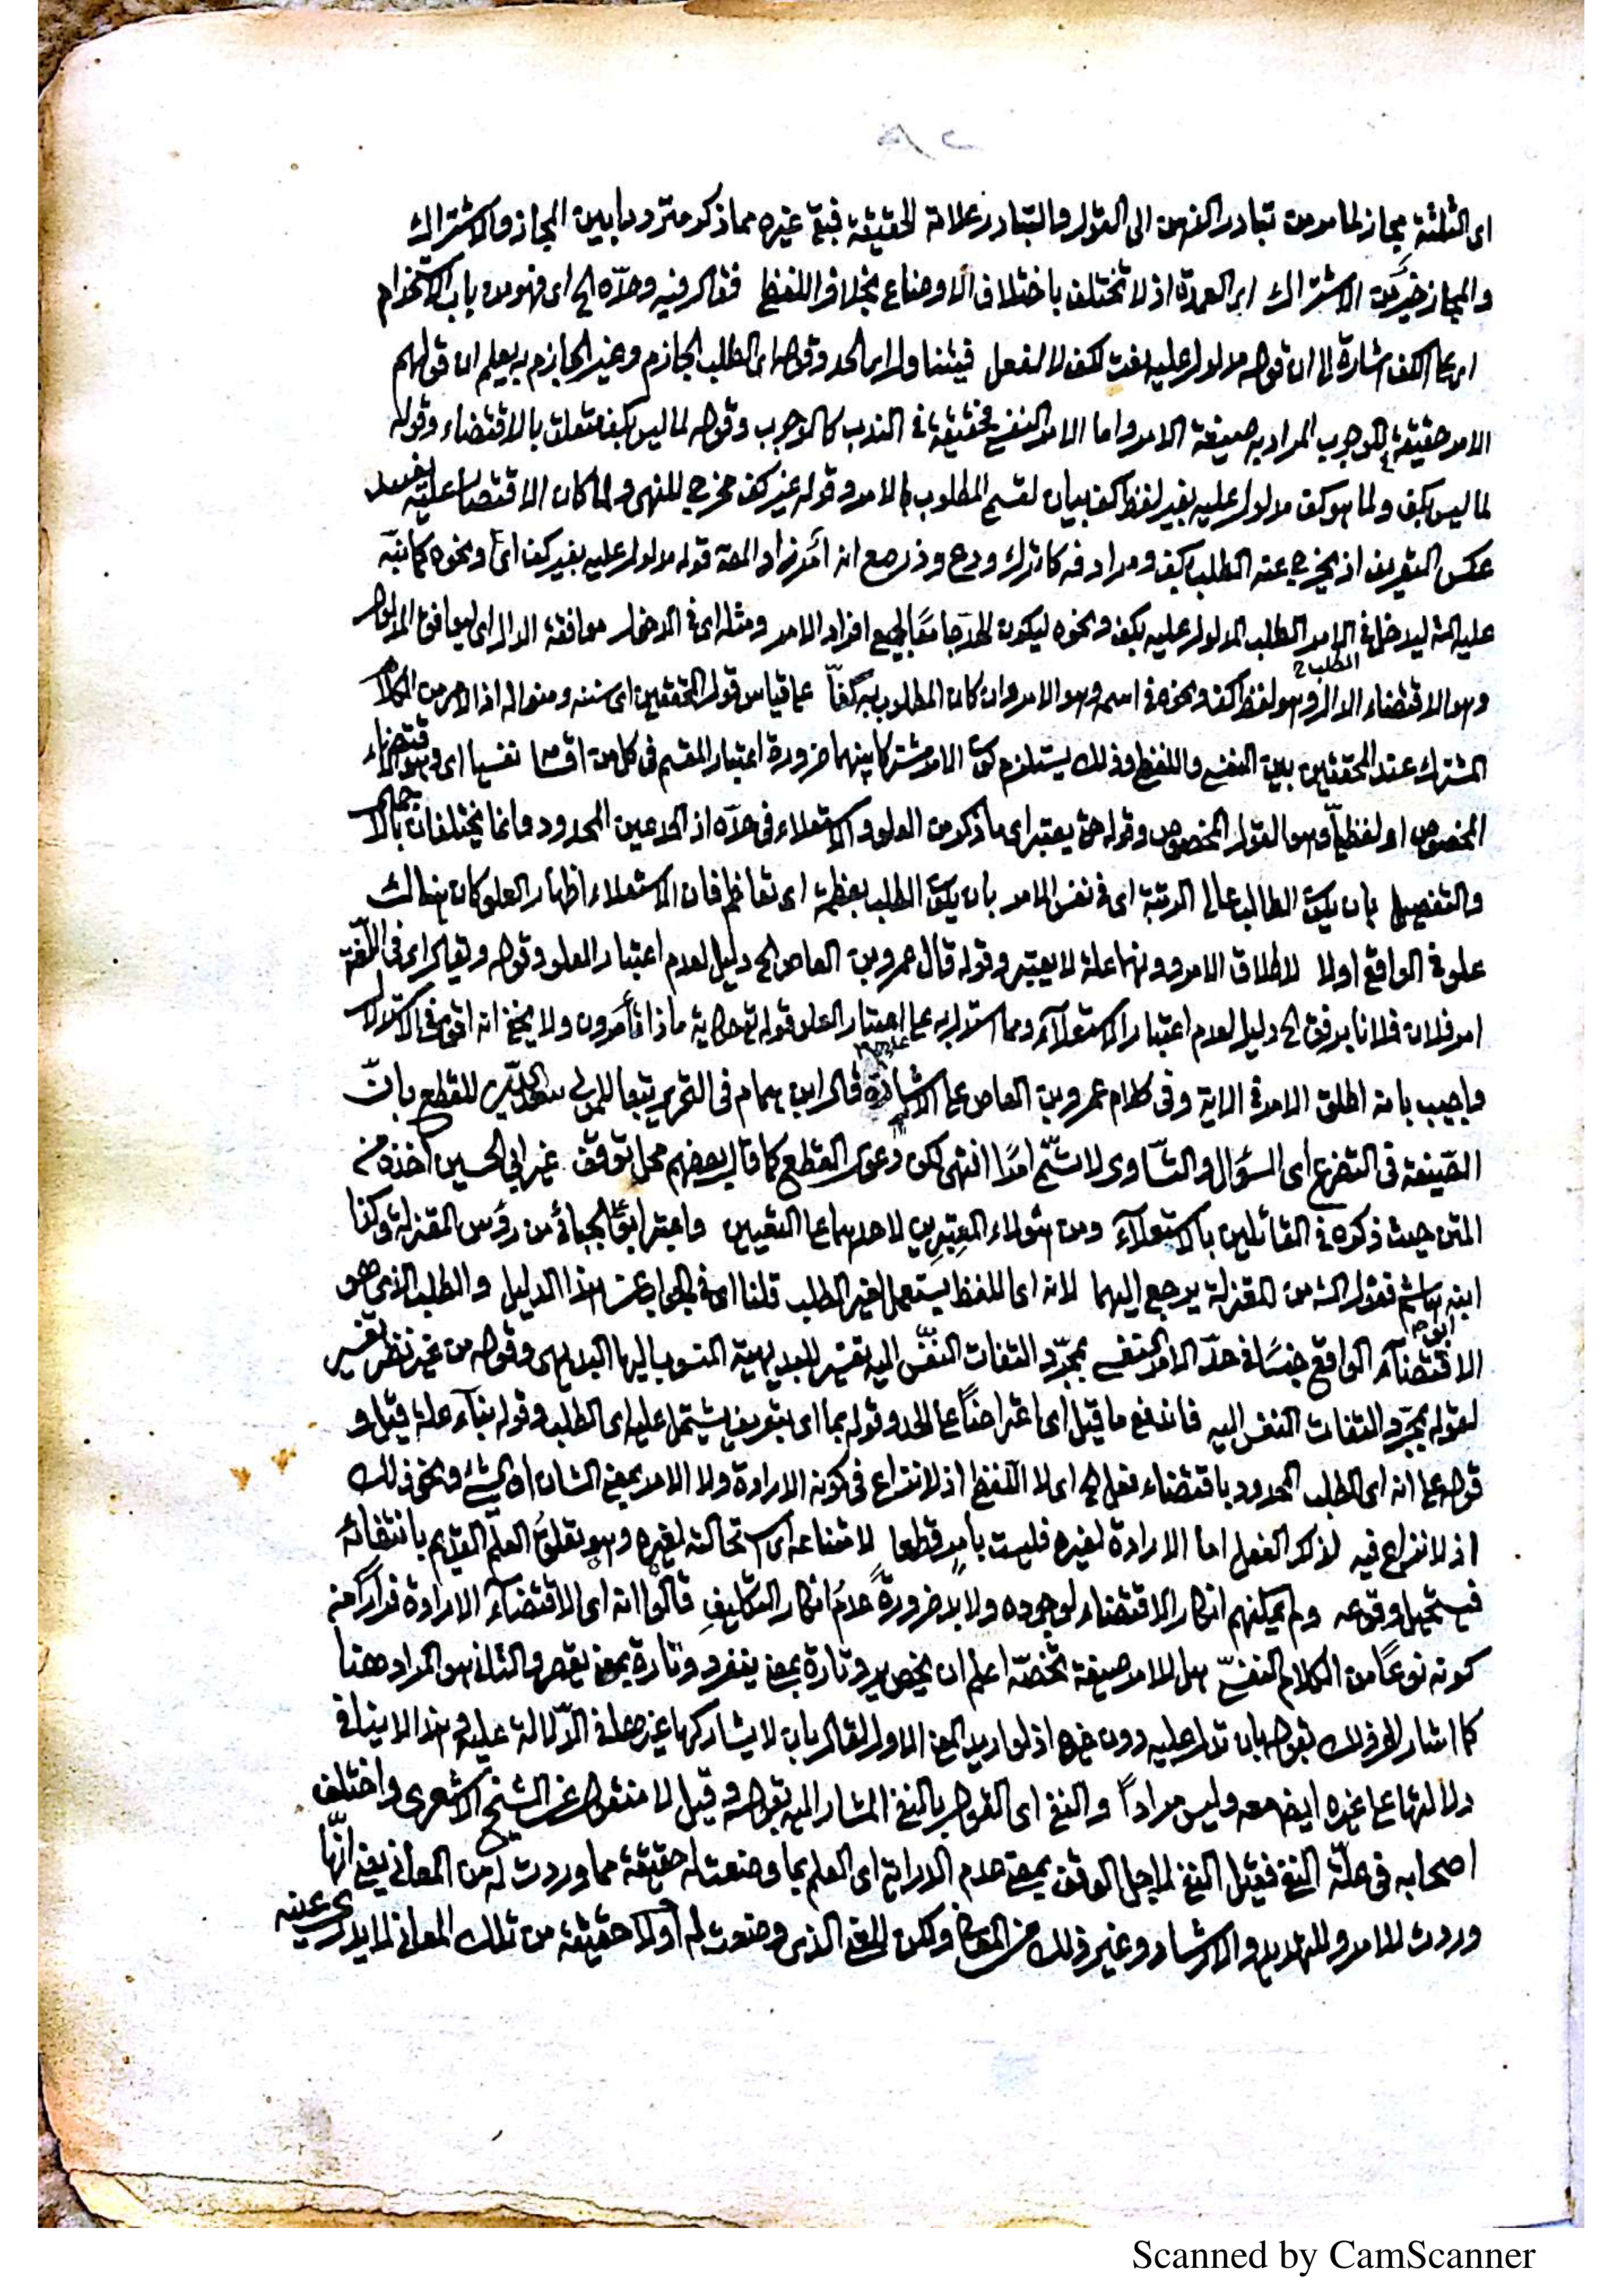 اى الثلثة مجاز لما مر من تبادر الذهن الى القول والتبادر علامة الحقيقة فبقى غيره مما ذكر مترددا بين المجاز والاشتراك
والمجاز خير من الاشتراك اى العمدة اذ لا تختلف باختلاف الاوضاع بخلاف اللفظ فقال فيه وحدّه الخ اى فهو من باب الاستخدام
اى على الكف اشارة الى ان قوله مدلول عليه نعت لكف لا لفعل فيتناول اى الحد وقوله اى الطلب الجازم وغير الجازم به يعلم ان قولهم
الامر حقيقة فى الوجوب المراد به صيغة الامر واما الامر النفسى فحقيقة فى الندب كالوجوب وقوله لما ليس بكف متعلق بالاقتضاء وقوله
لما ليس بكف ولما هو كف مدلول عليه بغير لفظ كف بيان لقسم المطلوب بالامر وقوله غير كف مخرج للنهى ولما كان الاقتصار عليه يفسد
عكس التعريف اذ يخرج عنه الطلب بكف ومرادفه كاترك ودع وذر مع انه امر زاد المص قوله مدلول عليه بغير كف اى ونحوه كما نبّه
عليه الش ليدخل فى الامر الطلب المدلول عليه بكف ونحوه ليكون الحد جامعًا لجميع افراد الامر ومثله اى فى الادخال موافقة الدال اى ليوافق المدلول
وهو الاقتضاء الدال وهو لفظ كف ونحوه فى اسمه وهو الامر وان كان المطلوب به كفّا على قياس قول المحققين اى سننه ومنواله اذ الامر من الكلام
الطلب
المشترك عند المحققين بين النفسى واللفظى وذلك يستلزم كون الامر مشتركا بينهما ضرورة اعتبار المقسم فى كل من اقسامه نفسيا اى وهو الاقتضاء
المخصوص او لفظيّا وهو القول المخصوص وقوله حتى يعتبر اى ما ذكر من العلو والاستعلاء فى حدّه اذ الحد عين المحدود وانما يختلفان بالاجمال
والتفصيل بان يكون الطالب عالى الرتبة اى فى نفس الامر بان يكون الطلب بعظمة اى تعاظم فان الاستعلاء اظهار العلو كان هنالك
علو فى الواقع اولا لاطلاق الامر دونهما علة لا يعتبر وقوله قال عمرو بن العاص الخ دليل لعدم اعتبار العلو وقوله ويقال اى فى اللّغة
امر فلان فلانا برفق الخ دليل لعدم اعتبار الاستعلاء ومما استدل به على اعتبار العلو قوله تع حكاية ماذا تأمرون ولا يخفى انه اقوى فى الاستدلال
واجيب بانه اطلق الامر فى الاية وفى كلام عمرو بن العاص على الاشارة قال ابن همام فى التحرير تبعا للمولى سعد الدين للقطع بانّ
الصّيغة فى التضرع اى السؤال والتساوى لا تسمّى امرًا انتهى لكن دعوى القطع كما قال بعضهم محل توقف غير ابى الحسين اخذه من
المتن حيث ذكره فى القائلين بالاستعلاء ومن هؤلاء المعتبرين لاحدهما على التعيين واعتبر ابو على الجبائى من رؤس المعتزلة وكذا
ابنه هاشم فقول الش من المعتزلة يرجع اليهما لانه اى اللفظ يستعمل لغير الطلب قلنا اى فى الجواب عن هذا الدليل والطلب الذى هو
الاقتضاء الواقع جنسًا فى حدّ الامر النفسى بمجرّد التفات النفس اليه تفسير للبديهية المنسوب اليها البديهى وقوله من غير نظر تفسير
لقوله بمجرّد التفات النفس اليه فاندفع ما قيل اى اعتراضًا على الحد وقوله بما اى بتعريف يشتمل عليه اى الطلب وقوله بناء علة قيل و
قوله على انه اى الطلب المحدود باقتضاء فعل الخ اى لا اللّفظ اذ لا نزاع فى كونه الارادة ولا الامر بمعنى الشان او الشئ ونحو ذلك
اذ لا نزاع فيه لذلك الفعل اما الارادة لغيره فليست بامر قطعا لامتناعه اى استحالته لغيره وهو تعلق العلم القديم بانتفائه
فيستحيل وقوعه ولم يمكنهم انكار الاقتضاء لوجوده ولا بد ضرورة عدم انكار التكليف قالوا انه اى الاقتضاء الارادة فرارًا من
كونه نوعًا من الكلام النفسىّ هل للامر صيغة تخصّه اعلم ان يخص يرد تارة بمعنى ينفرد وتارة بمعنى يقصر والثانى هو المراد هنا
كما اشار الى ذلك بقوله بان تدل عليه دون غيره اذ لو اريد المعنى الاول لقال بان لا يشاركها غيرها فى الدّلالة عليه وهذا لا ينافى
دلالتها على غيره ايض معه وليس مرادًا والنفى اى القول بالنفى المشار اليه بقوله وقيل لا منقول عن الشيخ الاشعرى واختلف
اصحابه فى علّة النفى فقيل النفى لاجل الوقف بمعنى عدم الدراية اى العلم بما وضعت له حقيقة مما وردت له من المعانى يعنى انّها
وردت للامر والتهديد والارشاد وغير ذلك من المعانى ولكن المعنى الذى وضعت له اولا حقيقة من تلك المعانى لا يدرى عينه
Scanned by CamScanner